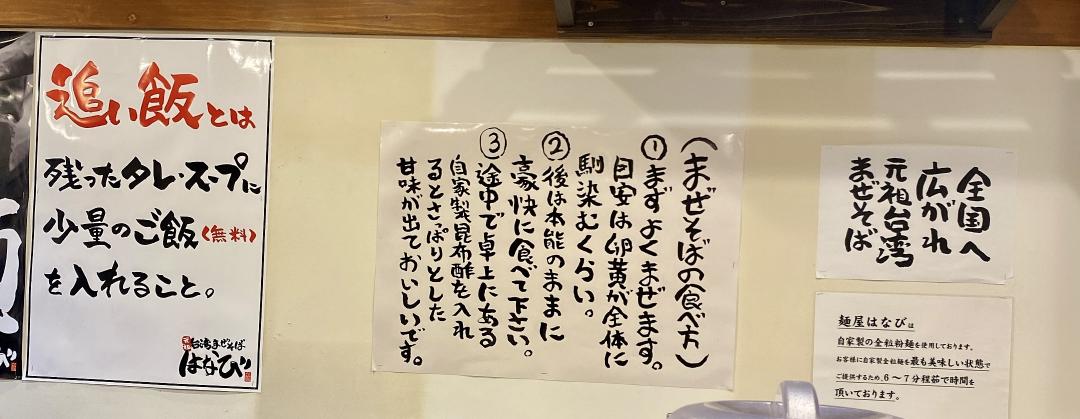 追い飯とは
残ったタレ・スープに
少量のご飯(無料)
を入れること。
元祖
台湾まぜそば
はなび
(まぜそばの食べ方)
①まずよくまぜます。
目安は卵黄が全体に
馴染むくらい。
②後は本能のままに
豪快に食べて下さい。
③途中で卓上にある
自家製昆布酢を入れ
るとさっぱりとした
甘味が出ておいしいです。
全国へ
広がれ
元祖台湾
まぜそば
麺屋はなびは
自家製の全粒粉麺を使用しております。
お客様に自家製全粒麺を最も美味しい状態で
ご提供するため、6〜7分程茹で時間を
頂いております。